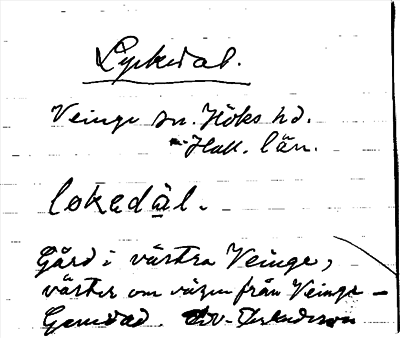 Lyckedal.
Veinge sn. Höks hd.
Hall. län.
lokedäl.
Gård i västra Veinge,
väster om vägen från Veinge -